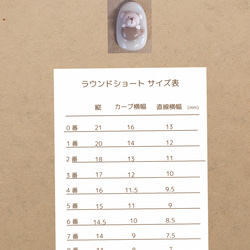 ラウンドショート サイズ表
縦 カーブ横幅 直線横幅 (mm)
0番 21 16 13
1番 20 14 12
2番 18 13 11
3番 17 12 10
4番 16 11.5 9.5
5番 15 11 9
6番 14.5 10 8.5
7番 14 9 7.5